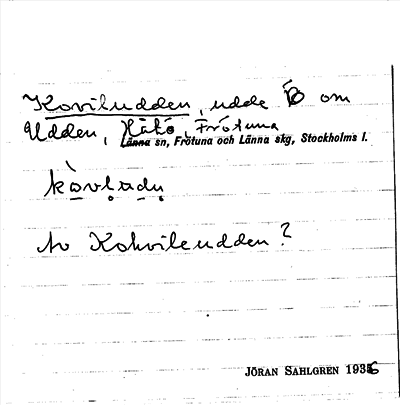 Koviludden, udde Ö om
Udden, Håkö, Frötuna
Länna sn, Frötuna och Länna skg, Stockholms l.
kòvludn
Av Kohviludden?
JÖRAN SAHLGREN 1936